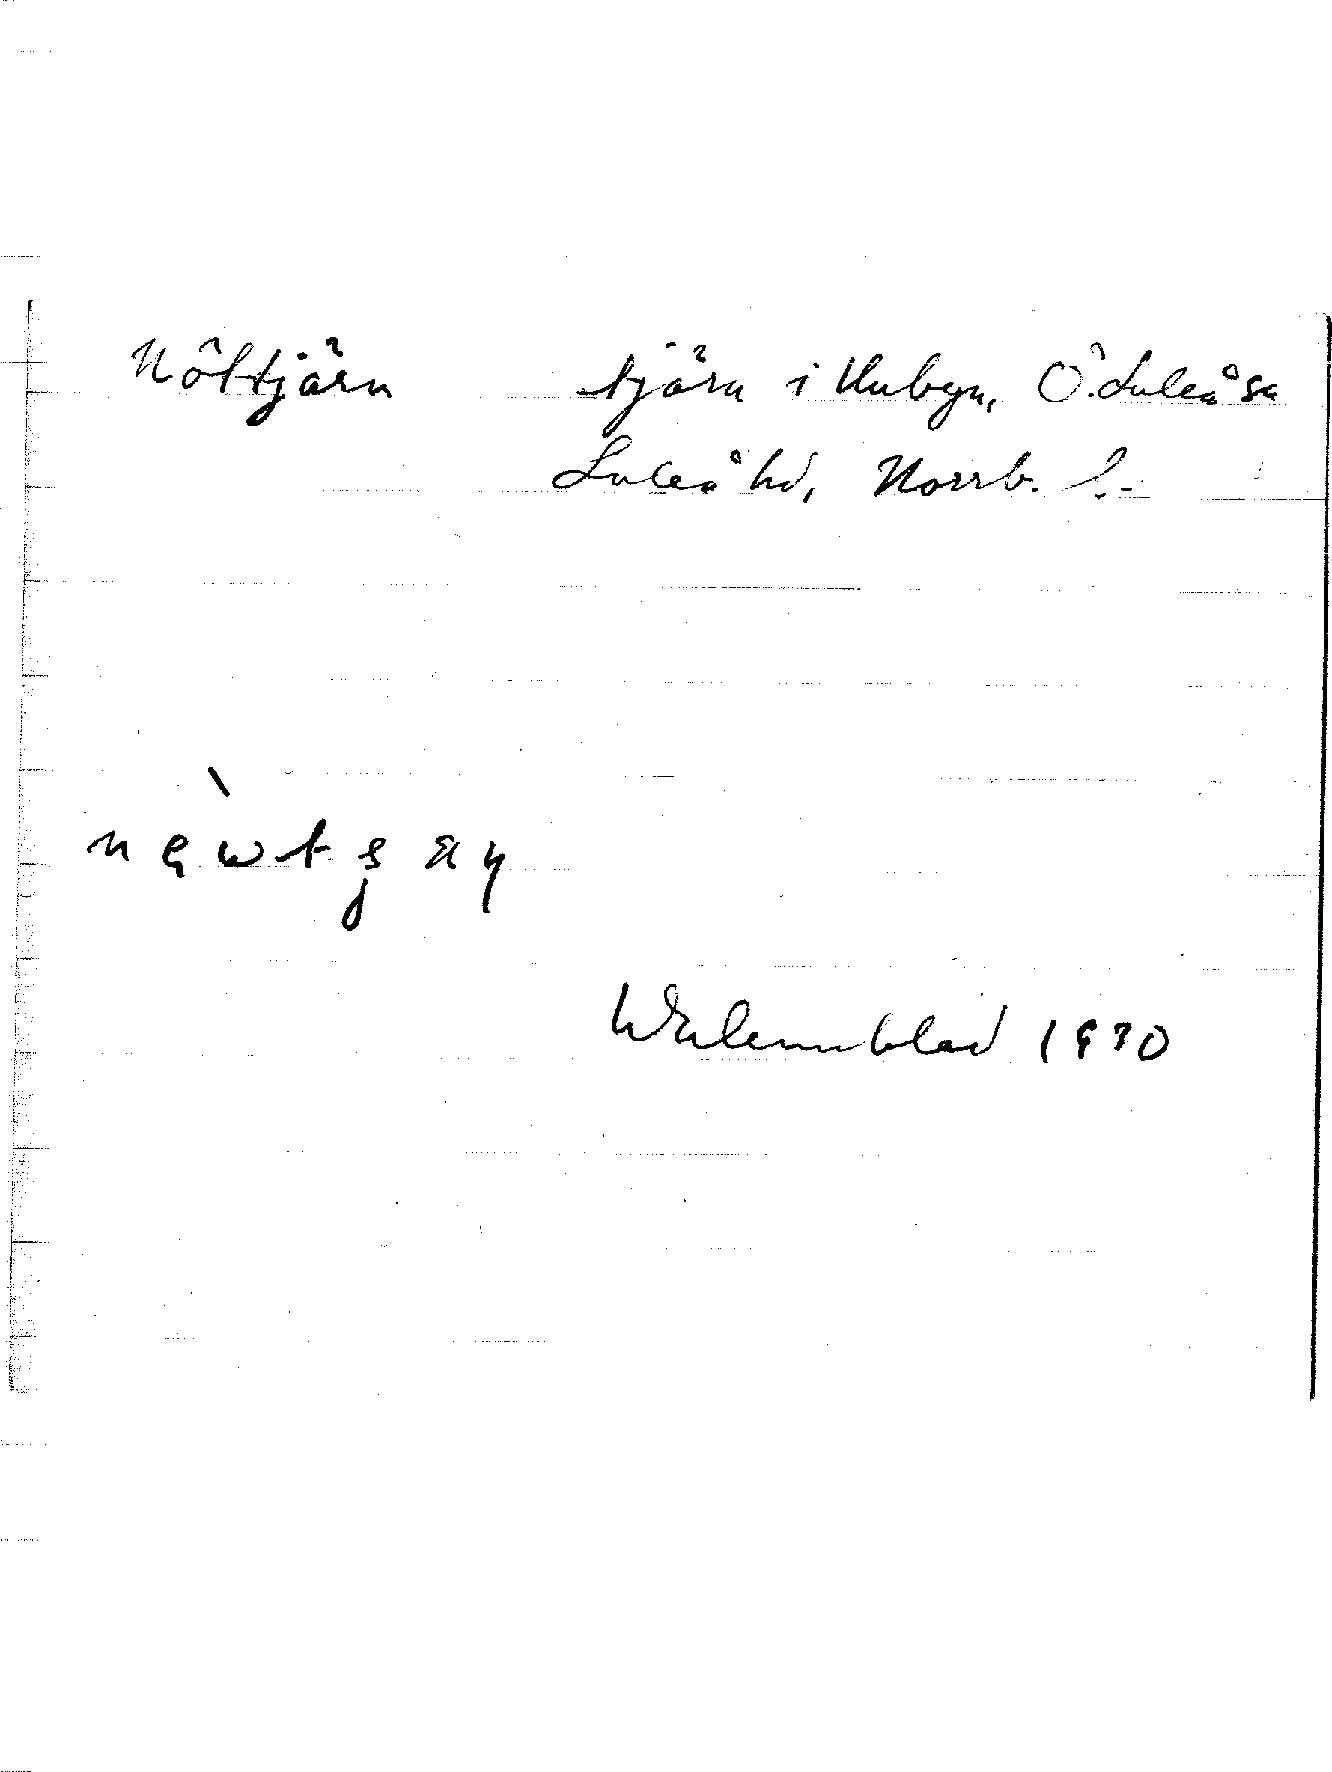 Nöttjärn tjärn i Unbyn, Ö. Luleå sn
Luleå hd, Norrb. l.
Wålennblad 1970